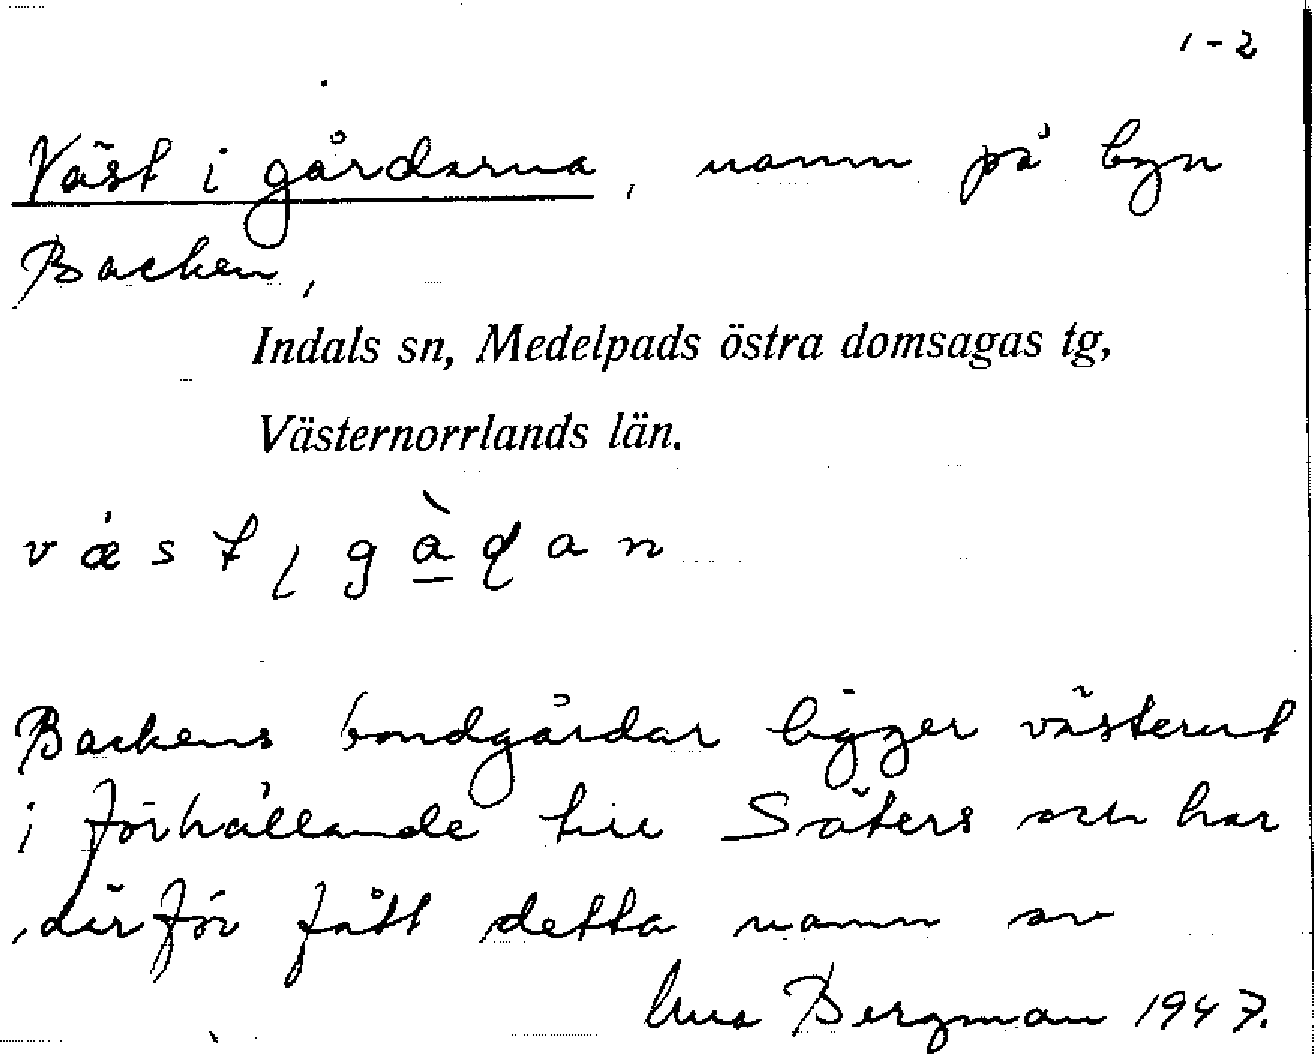 1-2
Väst i gårdarna, namn på byn
Backen,
Indals sn, Medelpads östra domsagas tg,
Västernorrlands län.
Backens bondgårdar ligger västerut
i förhållande till Säters och har
därför fått detta namn av
Bergman 1947.